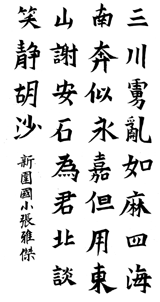 三川虜亂如麻四海
南奔似永嘉但用東
山謝安石為君北談
笑靜胡沙
新園國小張雅傑